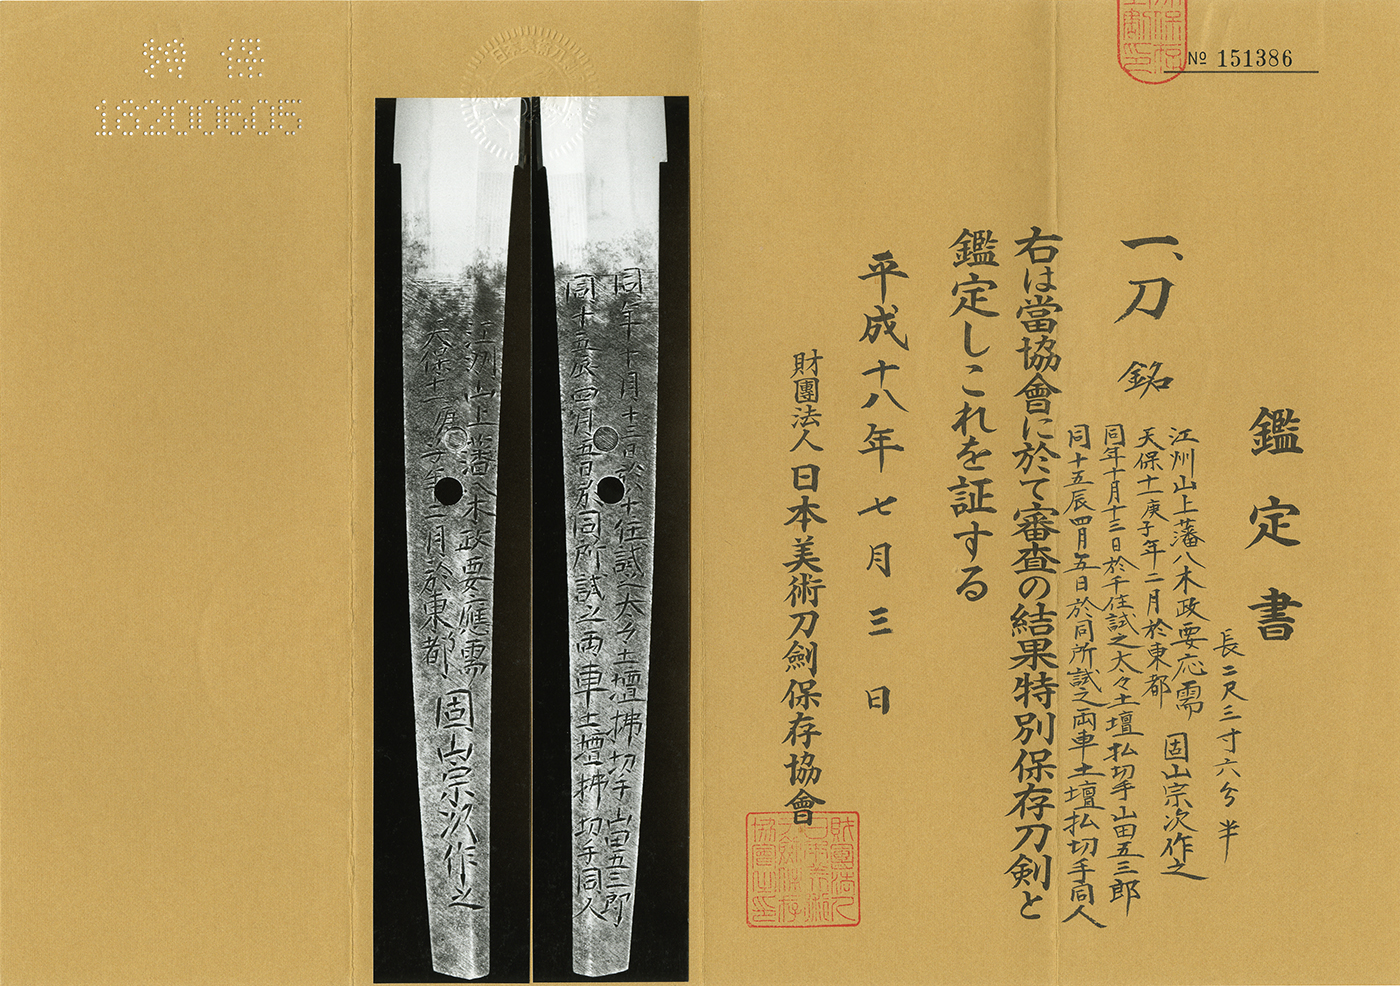 № 151386
鑑定書
長二尺三寸六分半
一、刀 銘
江州山上藩八木政要応需 固山宗次作之
天保十一庚子年二月於東都
同年十月十三日於千住試之太々土壇払切手山田五三郎
同十五辰四月五日於同所試之両車土壇払切手同人
右は當協會に於て審査の結果特別保存刀剣と
鑑定しこれを証する
平成十八年七月三日
財團法人日本美術刀劍保存協會
同年十月十三日於千住試之太々土壇拂切手山田五三郎
同十五辰四月五日於同所試之両車土壇拂切手同人
江州山上藩八木政要應需
天保十一庚子年二月於東都 固山宗次作之
特保
18200605